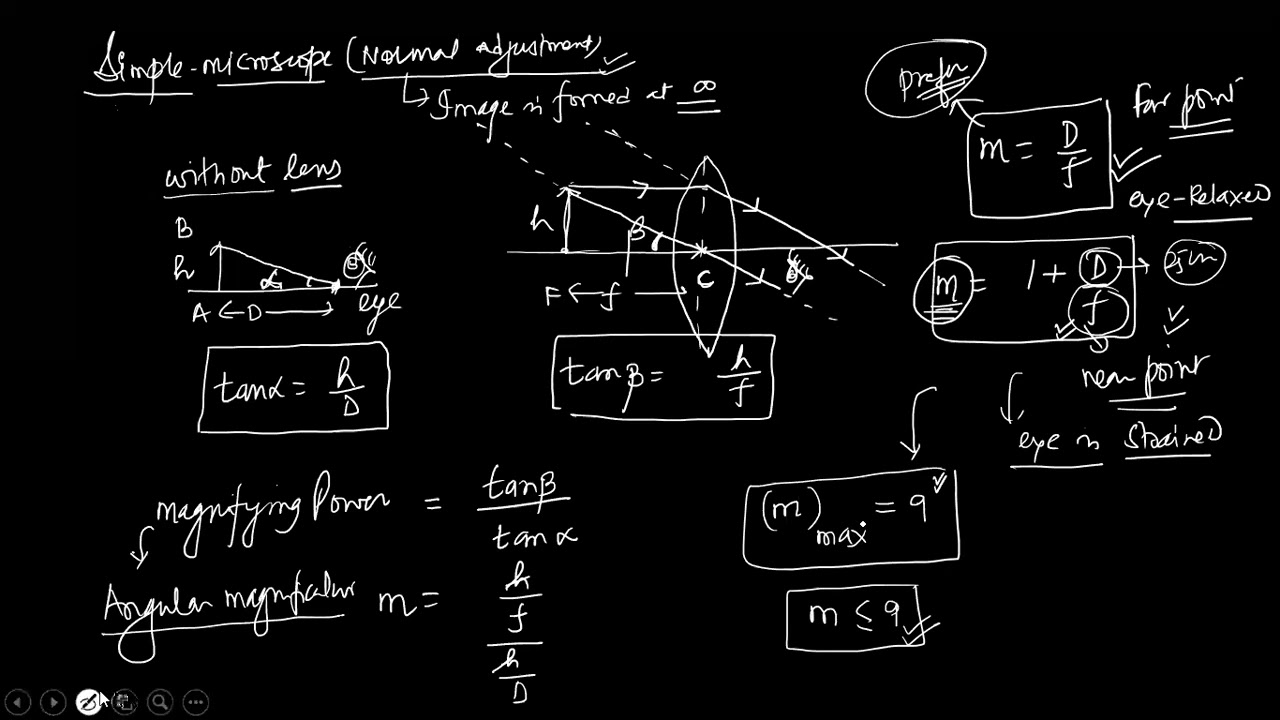 Simple-microscope (Normal adjustment)
Image is formed at ∞
without lens
B
h
α
A ← D → eye
tanα = h/D
h
β
C
F ← f →
tanβ = h/f
prefer
m = D/f
far point
eye-Relaxed
m = 1 + D/f
25cm
near point
eye is strained
magnifying Power = tanβ/tanα
Angular magnification m = (h/f)/(h/D)
(m)max = 9
m ≤ 9